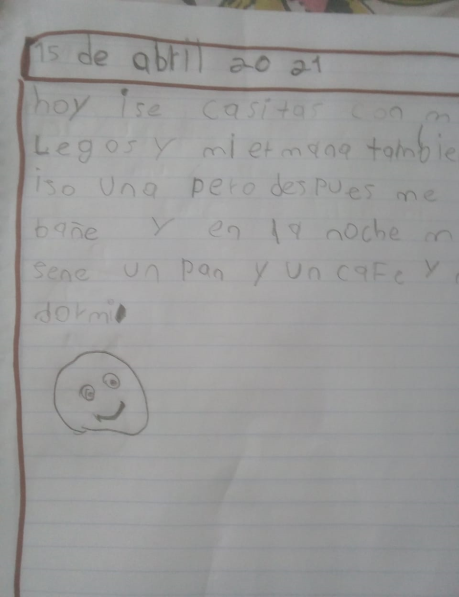 15 de abril 2021
hoy ise casitas con m
Legos y mi ermana tambie
iso una pero despues me
bañe y en la noche m
sene un pan y un cafe y
dormi